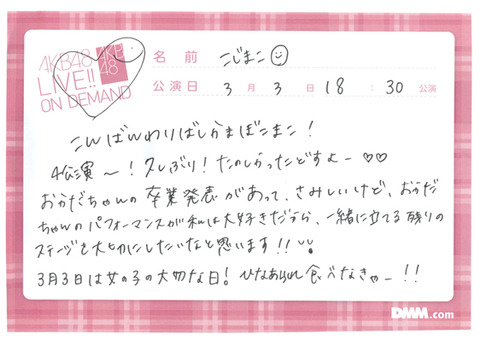 AKB48
LIVE!!
ON DEMAND
AKB
48
名前 こじまこ
公演日 3月3日 18:30公演
こんばんわりばしかまぼこまこ!
4公演〜!久しぶり!たのしかったどすよー♡♡
おかだちゃんの卒業発表があって、さみしいけど、おかだ
ちゃんのパフォーマンスが私は大好きだから、一緒に立てる残りの
ステージを大切にしたいなと思います!!
3月3日は女の子の大切な日!ひなあられ食べなきゃー!!
DMM.com